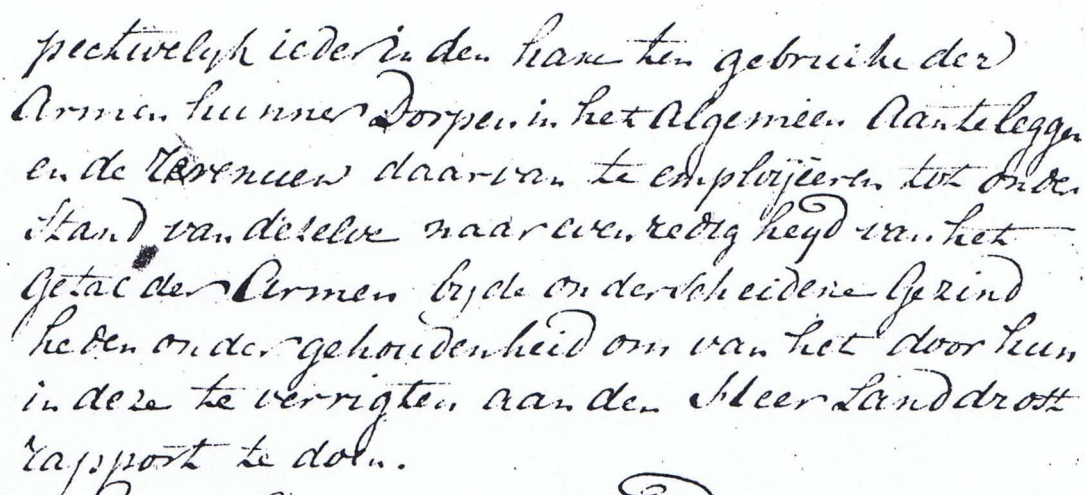 pectivelijk ieder in den hare ten gebruike der
Armen hunner Dorpen in het Algemeen Aanteleggen
en de Revenuen daarvan te emploijeeren tot onder
stand van dezelve naar evenredigheyd van het
getal der Armen bij de onderscheidene Gezind
heden onder gehoudenheid om van het door hun
in deze te verrigten aan den Heer Landdrost
rapport te doen.